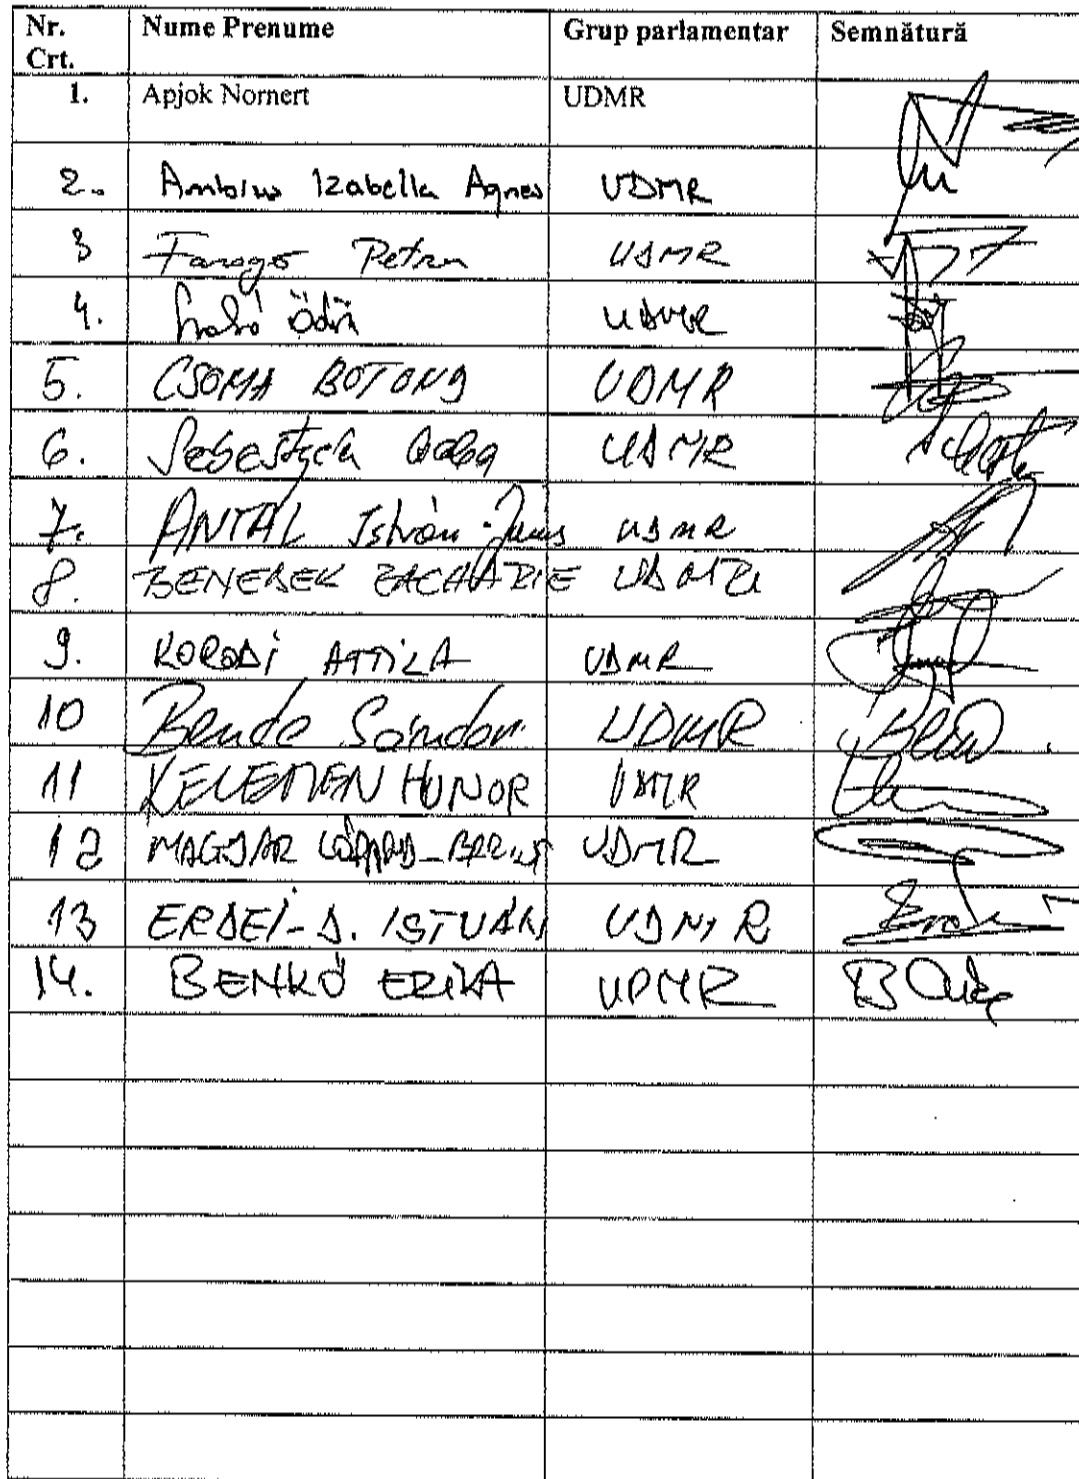 Nr. Crt. Nume Prenume Grup parlamentar Semnătură
1. Apjok Nornert UDMR
2. Ambrus Izabella Agnes UDMR
3 Farago Petru UDMR
4. Szabó Ödön UDMR
5. CSOMA BOTOND UDMR
6. Sebestyén Csaba UDMR
7. ANTAL István-János UDMR
8. BENEDEK ZACHARIE UDMR
9. KORODI ATTILA UDMR
10 Bende Sándor UDMR
11 KELEMEN HUNOR UDMR
12 MAGYAR LÓRÁND-BÁLINT UDMR
13 ERDEI-D. ISTVÁN UDMR
14. BENKŐ ERIKA UDMR